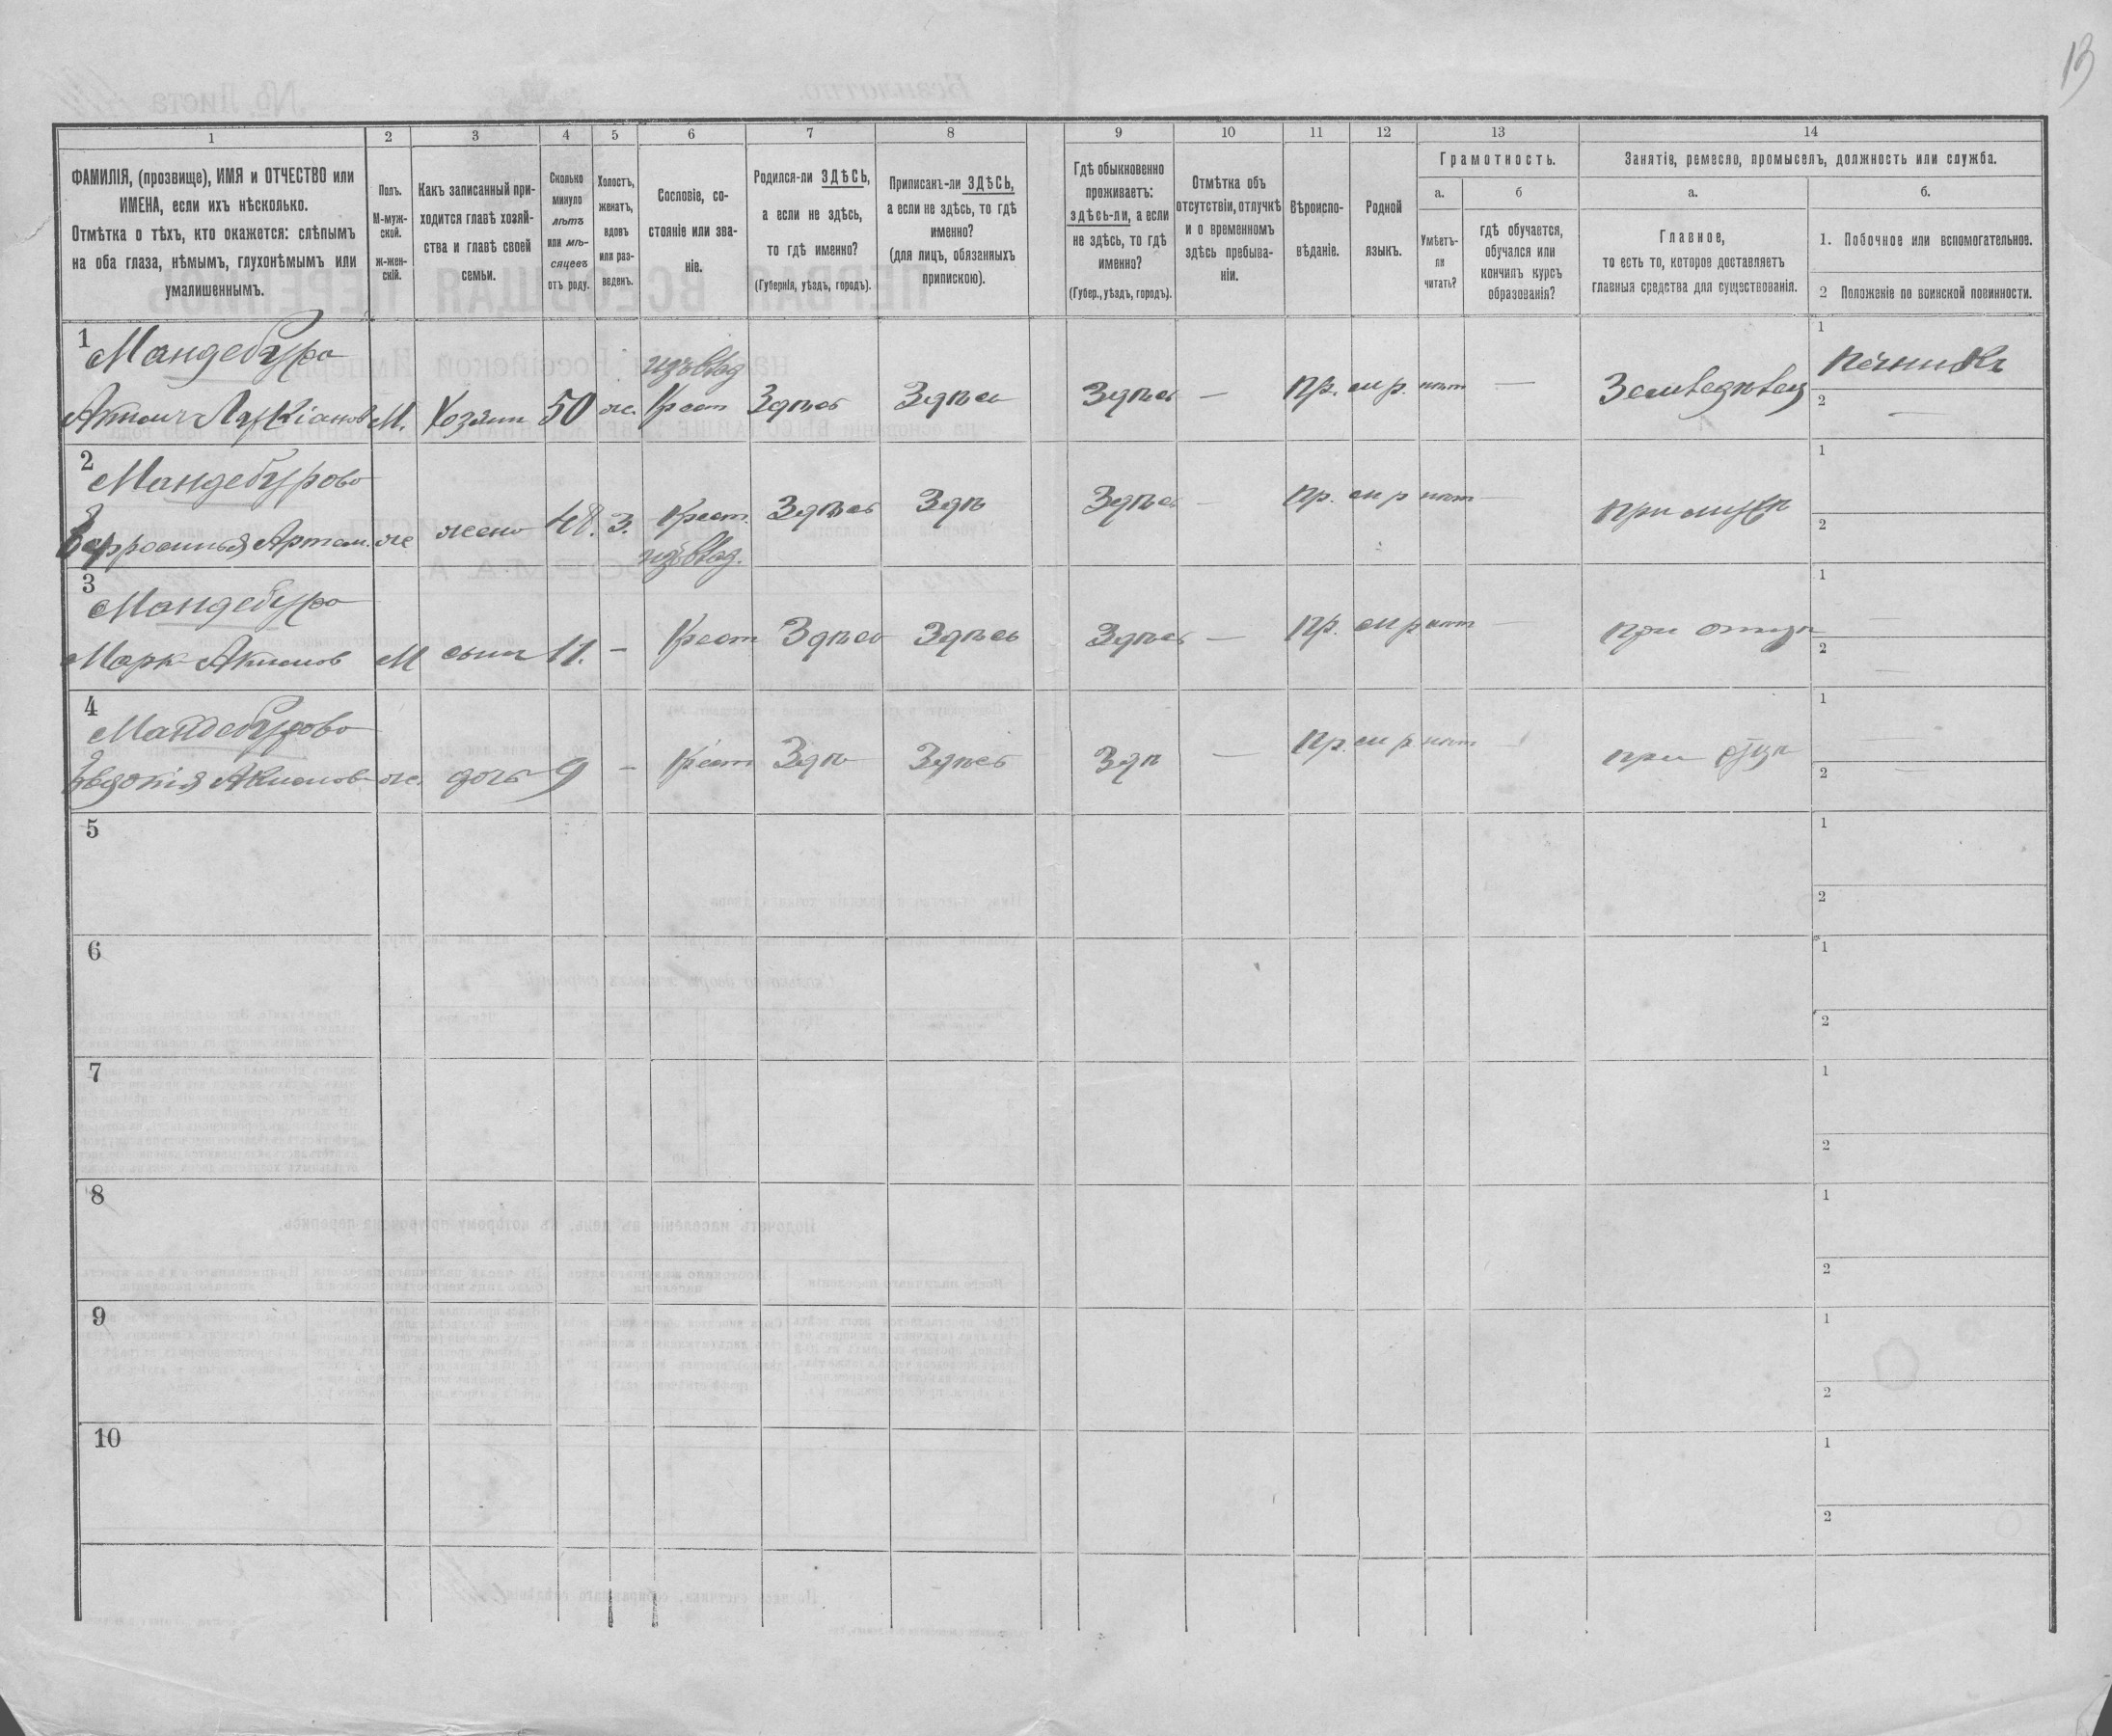 13
1
2
3
4
5
6
7
8
9
10
11
12
13
14
ФАМИЛІЯ, (прозвище), ИМЯ и ОТЧЕСТВО или
ИМЕНА, если ихъ нѣсколько.
Отмѣтка о тѣхъ, кто окажется: слѣпымъ
на оба глаза, нѣмымъ, глухонѣмымъ или
умалишеннымъ.
Полъ.
М-муж-
ской.
ж-жен-
скій.
Какъ записанный при-
ходится главѣ хозяй-
ства и главѣ своей
семьи.
Сколько
минуло
лѣтъ
или мѣ-
сяцевъ
отъ роду.
Холостъ,
женатъ,
вдовъ
или раз-
веденъ.
Сословіе, со-
стояніе или зва-
ніе.
Родился-ли ЗДѢСЬ,
а если не здѣсь,
то гдѣ именно?
(Губернія, уѣздъ, городъ).
Приписанъ-ли ЗДѢСЬ,
а если не здѣсь, то гдѣ
именно?
(для лицъ, обязанныхъ
припискою).
Гдѣ обыкновенно
проживаетъ:
здѣсь-ли, а если
не здѣсь, то гдѣ
именно?
(Губер., уѣздъ, городъ).
Отмѣтка объ
отсутствіи, отлучкѣ
и о временномъ
здѣсь пребыва-
ніи.
Вѣроиспо-
вѣданіе.
Родной
языкъ.
Грамотность.
а.
б
Умѣетъ-
ли
читать?
гдѣ обучается,
обучался или
кончилъ курсъ
образованія?
Занятіе, ремесло, промыселъ, должность или служба.
а.
б.
Главное,
то есть то, которое доставляетъ
главныя средства для существованія.
1. Побочное или вспомогательное.
2 Положеніе по воинской повинности.
1
Мандебура
М. Хозяин 50 ж. Крест Здѣсь Здѣсь Здѣсь — пр. м р. нѣт —
1 Печникъ
2 —
2
Мандебурова
ж жена 48. З. Крест. Здѣсь Здѣ Здѣсь — пр. м р нѣт — при мужѣ
1
2
3
Мандебура
Марк Акимов М сынъ 11. - Крест Здѣсь Здѣсь Здѣсь — пр. м р нѣт — при отцѣ
1
2 —
4
Мандебурова
Евдокія Акимова ж. дочь 9 - Крест Здѣ Здѣсь Здѣ — пр. м р нѣт — при отцѣ
1 —
2 —
5
1
2
6
1
2
7
1
2
8
1
2
9
1
2
10
1
2